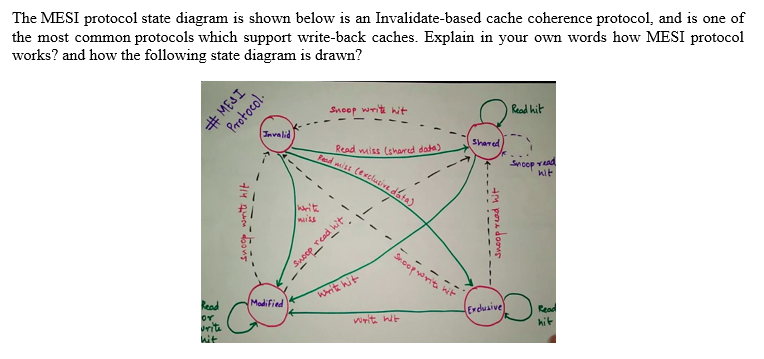 The MESI protocol state diagram is shown below is an Invalidate-based cache coherence protocol, and is one of
the most common protocols which support write-back caches. Explain in your own words how MESI protocol
works? and how the following state diagram is drawn?
# MESI
Protocol.
Snoop write hit
Read hit
Invalid
Shared
Read miss (shared data)
Snoop read
hit
Read miss (exclusive data)
Snoop write hit
write
miss
Snoop read hit
Snoop read hit
Snoop write hit
write hit
Modified
Exclusive
Read
or
write
hit
write hit
Read
hit